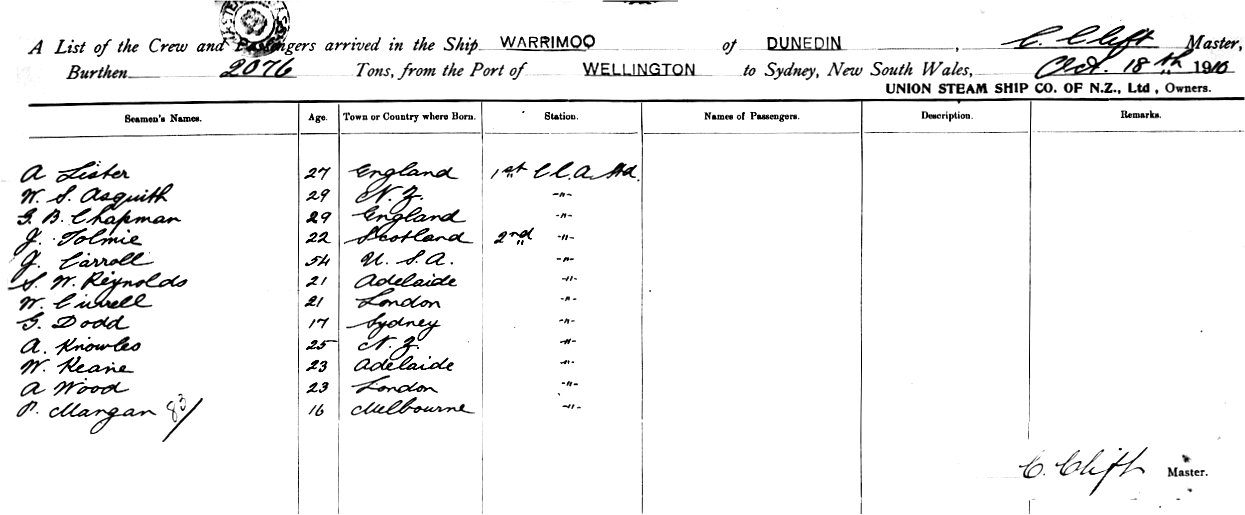 A List of the Crew and Passengers arrived in the Ship WARRIMOO of DUNEDIN, C. Clift Master,
Burthen 2076 Tons, from the Port of WELLINGTON to Sydney, New South Wales, Oct. 18th 1910
UNION STEAM SHIP CO. OF N.Z., Ltd, Owners.
Seamen's Names. Age. Town or Country where Born. Station. Names of Passengers. Description. Remarks.
A Lister 27 England 1st C.C. Attd.
W. S. Asquith 29 N.Z. -"-
G. B. Chapman 29 England -"-
J. Tolmie 22 Scotland 2nd -"-
J. Carroll 54 U.S.A. -"-
S. W. Reynolds 21 Adelaide -"-
W. 21 London -"-
G. Dodd 17 Sydney -"-
A. Knowles 25 N.Z. -"-
W. Keane 23 Adelaide -"-
A Wood 23 London -"-
P. Mangan 83/ 16 Melbourne -"-
C. Clift Master.